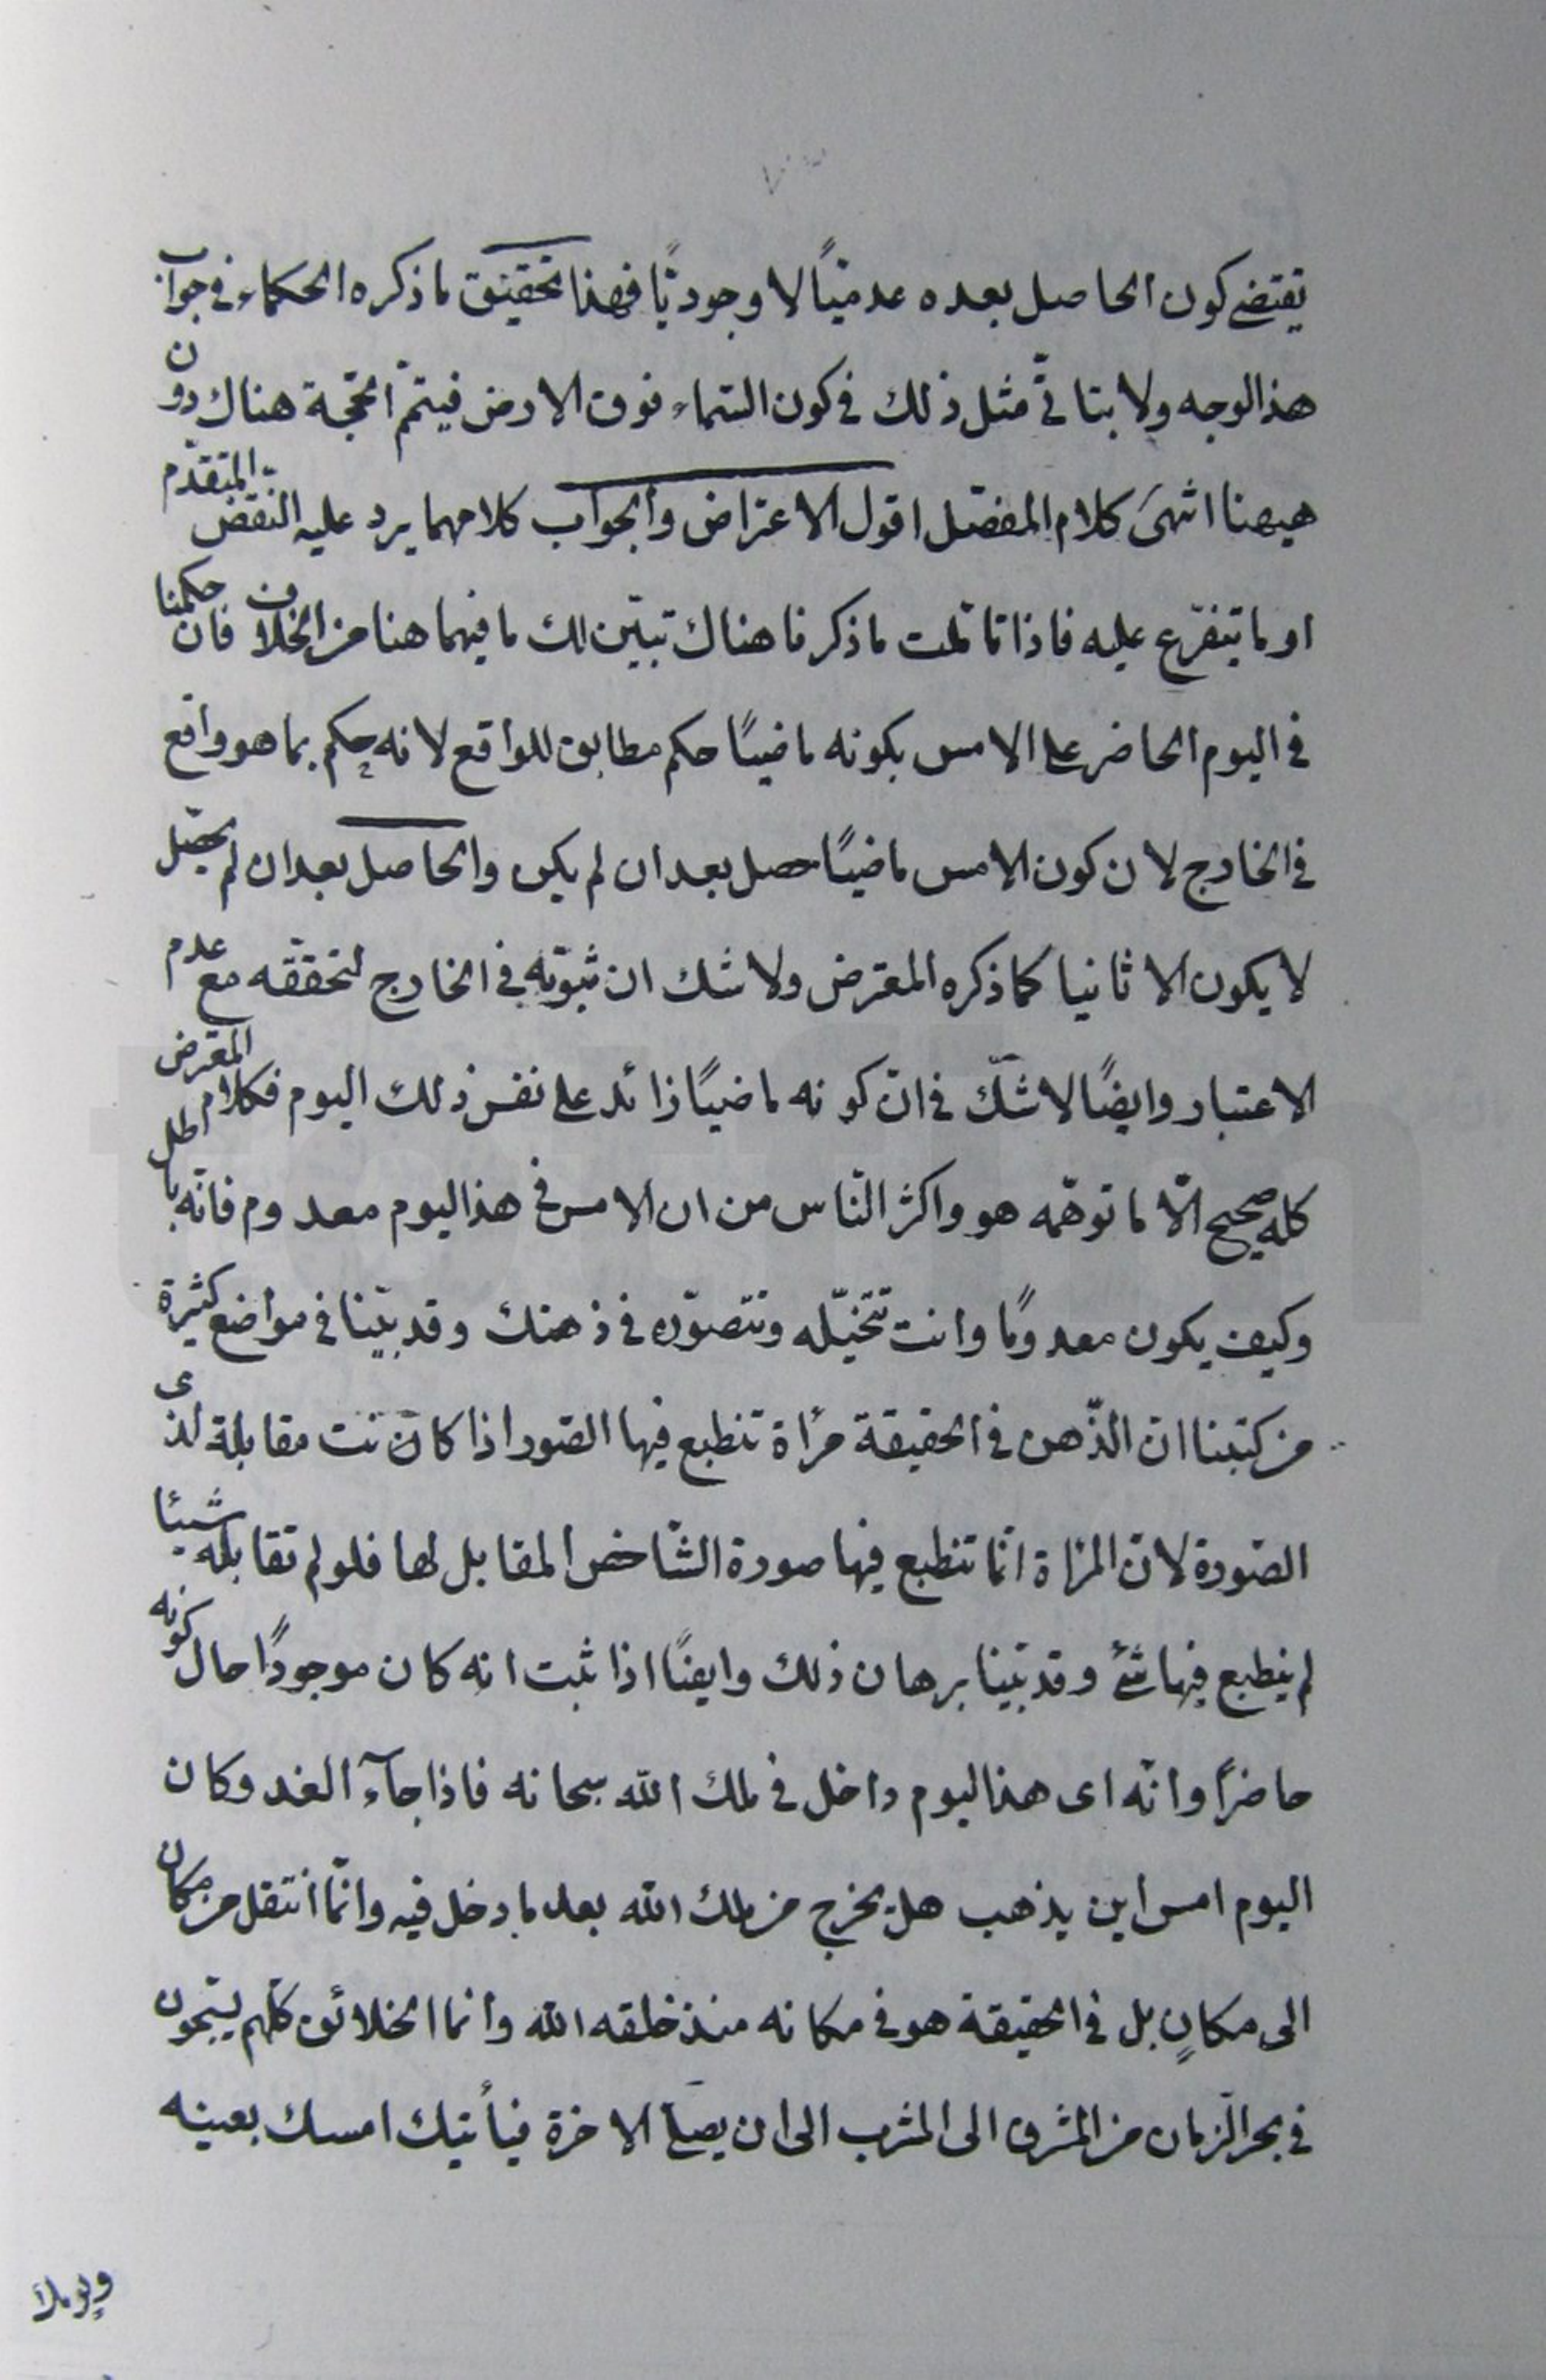 يقتضى كون الحاصل بعده عدميًّا لا وجوديًّا فهذا تحقيق ما ذكره الحكماء فى جواب
هذا الوجه ولا يتاتّى مثل ذلك فى كون السّماء فوق الارض فيتمّ الحجّة هناك دون
هيهنا انتهىَ كلام المفضّل اقول الاعتراض والجواب كلامهما يرد عليه النّقض المتقدّم
او ما يتفرّع عليه فاذا تاملت ما ذكرنا هناك تبيّن لك ما فيهما هنا من الخلاف فان حكمنا
فى اليوم الحاضر على الامس بكونه ماضيًا حكم مطابق للواقع لانه حكم بما هو واقع
فى الخارج لان كون الامس ماضيًا حصل بعد ان لم يكن والحاصل بعد ان لم يحصّل
لا يكون الا ثانيا كما ذكره المعترض ولا شك ان ثبوته فى الخارج لتحققه مع عدم
الاعتبار وايضًا لا شكّ فى انّ كونه ماضيًا زائد على نفس ذلك اليوم فكلام المعترض
كله صحيح الّا ما توهّمه هو واكثر النّاس من ان الامس فى هذا اليوم معدوم فانّه باطل
وكيف يكون معدومًا وانت تتخيّله وتتصوّره فى ذهنك وقد بيّنا فى مواضع كثيرة
من كتبنا انّ الذّهن فى الحقيقة مرأة تنطبع فيها الصّور اذا كانت مقابلة لذى
الصّورة لانّ المرأة انّما تنطبع فيها صورة الشّاخص المقابل لها فلو لم تقابله شيئا
لم ينطبع فيها شئ وقد بيّنا برهان ذلك وايضًا اذا ثبت انه كان موجودًا حال كونه
حاضرًا وانّه اى هذا ليوم داخل فى ملك الله سبحانه فاذا جآء الغد وكان
اليوم امس اين يذهب هل يخرج من ملك الله بعد ما دخل فيه وانّما انتقل من مكان
الى مكانٍ بل فى الحقيقة هو فى مكانه منذ خلقه الله وانما الخلائق كلّهم يسبحون
فى بحر الزّمان من المشرق الى المغرب الى ان يصل الاخرة فيأتيك امسك بعينه